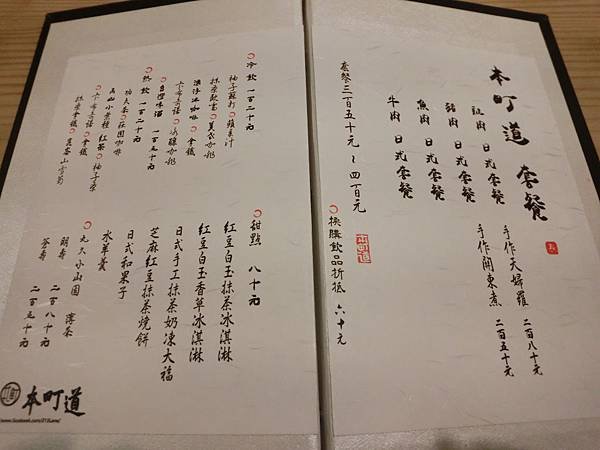 本町道 套餐
豚肉 日式套餐
雞肉 日式套餐
魚肉 日式套餐
牛肉 日式套餐
手作天婦羅 二百八十元
手作關東煮 二百五十元
套餐三百五十元~四百元
換購飲品折抵 六十元
冷飲 一百二十元
柚子蘇打 蘋果汁
抹茶歐蕾
漂浮冰咖啡 拿鐵
卡布奇諾
台灣啤酒 一百五十元
熱飲 一百二十元
功夫茶 莊園咖啡
紅茶 柚子茶
卡布奇諾 拿鐵
抹茶拿鐵
甜點 八十元
紅豆白玉抹茶冰淇淋
紅豆白玉香草冰淇淋
日式手工抹茶奶凍大福
芝麻紅豆抹茶燒餅
日式和菓子
水羊羹
丸久小山園 薄茶
明壽 二百八十元
蒼壽 二百五十元
本町道